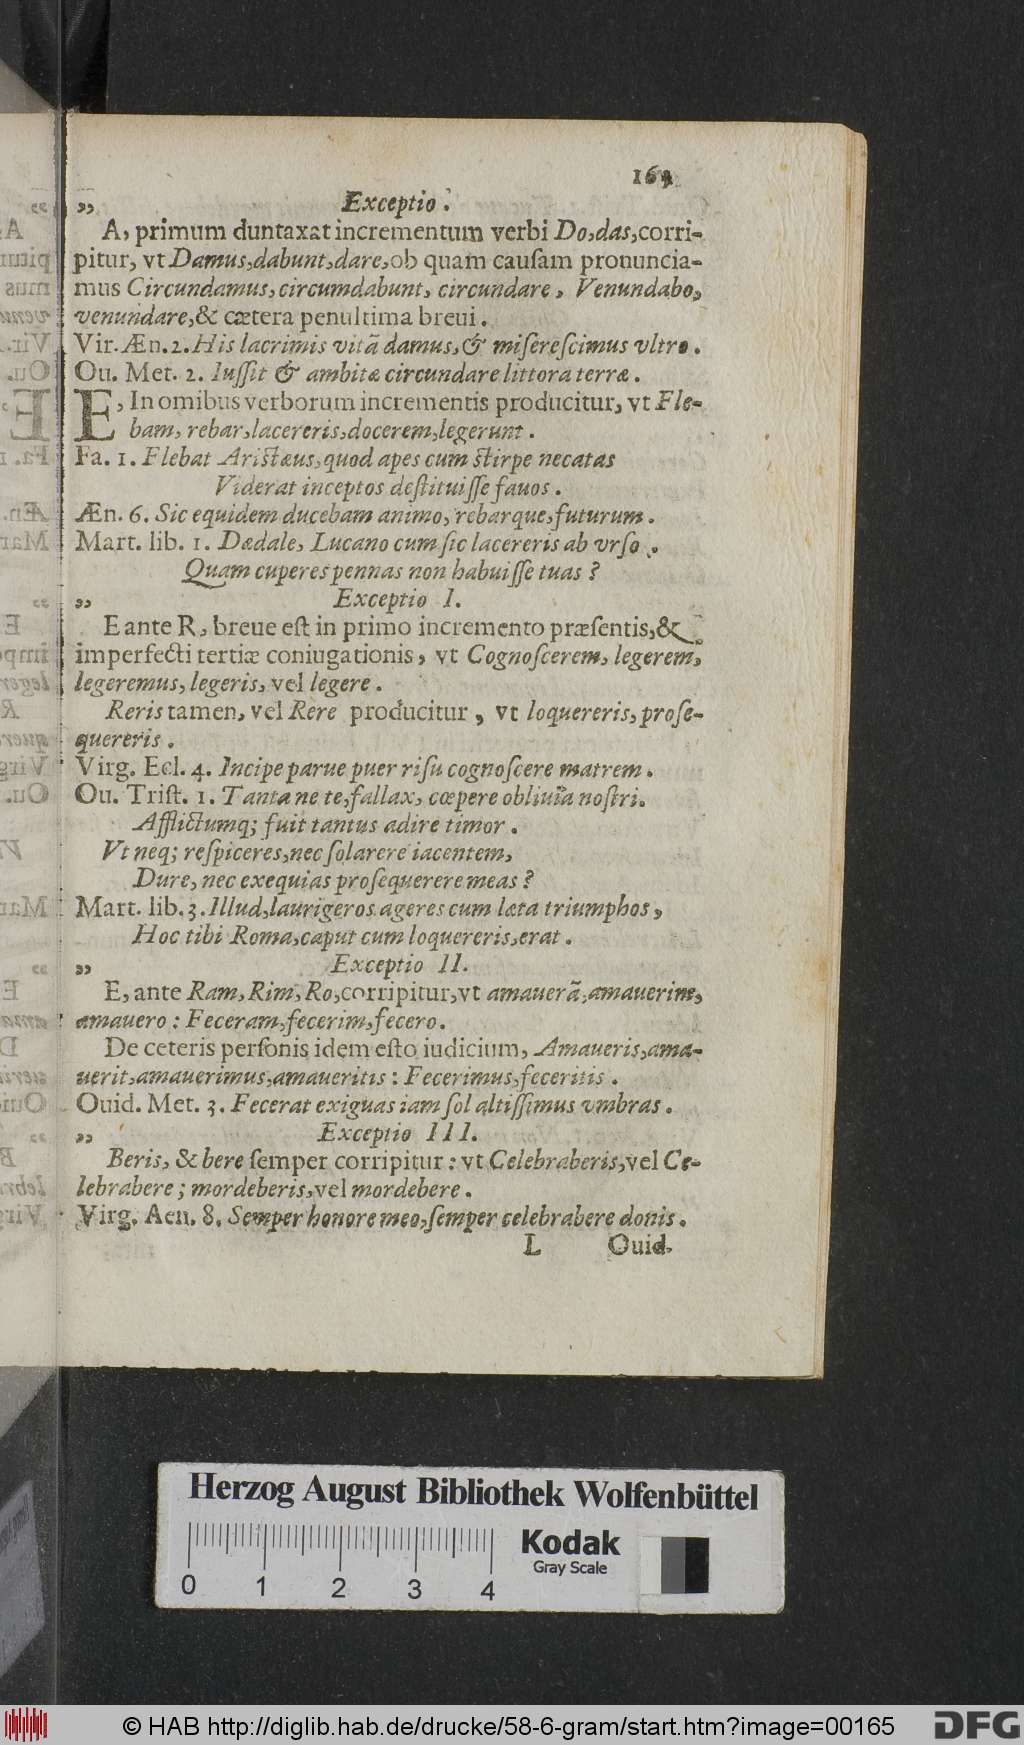 161
„ Exceptio.
A, primum duntaxat incrementum verbi Do, das, corri-
pitur, vt Damus, dabunt, dare, ob quam cauſam pronuncia-
mus Circundamus, circumdabunt, circundare, Venundabo,
venundare, & cætera penultima breui.
Vir. Æn. 2. His lacrimis vitã damus, & miſereſcimus vltro.
Ou. Met. 2. Iuſſit & ambitæ circundare littora terræ.
E, In omibus verborum incrementis producitur, vt Fle-
bam, rebar, lacereris, docerem, legerunt.
Fa. 1. Flebat Ariſtæus, quod apes cum ſtirpe necatas
Viderat inceptos deſtituiſſe fauos.
Æn. 6. Sic equidem ducebam animo, rebarque, futurum.
Mart. lib. 1. Dædale, Lucano cum ſic lacereris ab vrſo.
Quam cuperes pennas non habuiſſe tuas?
„ Exceptio I.
E ante R, breue eſt in primo incremento præſentis, &
imperfecti tertiæ coniugationis, vt Cognoſcerem, legerem,
legeremus, legeris, vel legere.
Reris tamen, vel Rere producitur, vt loquereris, proſe-
quereris.
Virg. Ecl. 4. Incipe parue puer riſu cognoſcere matrem.
Ou. Triſt. 1. Tanta ne te, fallax, cœpere obliuia noſtri.
Afflictumq; fuit tantus adire timor.
Vt neq; reſpiceres, nec ſolarere iacentem,
Dure, nec exequias proſequerere meas?
Mart. lib. 3. Illud, laurigeros ageres cum læta triumphos,
Hoc tibi Roma, caput cum loquereris, erat.
„ Exceptio II.
E, ante Ram, Rim, Ro, corripitur, vt amauerã, amauerim,
amauero: Feceram, fecerim, fecero.
De ceteris perſonis idem eſto iudicium, Amaueris, ama-
uerit, amauerimus, amaueritis: Fecerimus, feceritis.
Ouid. Met. 3. Fecerat exiguas iam ſol altiſſimus vmbras.
„ Exceptio III.
Beris, & bere ſemper corripitur: vt Celebraberis, vel Ce-
lebrabere; mordeberis, vel mordebere.
Virg. Aen. 8. Semper honore meo, ſemper celebrabere donis.
L Ouid.
Herzog August Bibliothek Wolfenbüttel
Kodak
Gray Scale
0 1 2 3 4
© HAB http://diglib.hab.de/drucke/58-6-gram/start.htm?image=00165
DFG